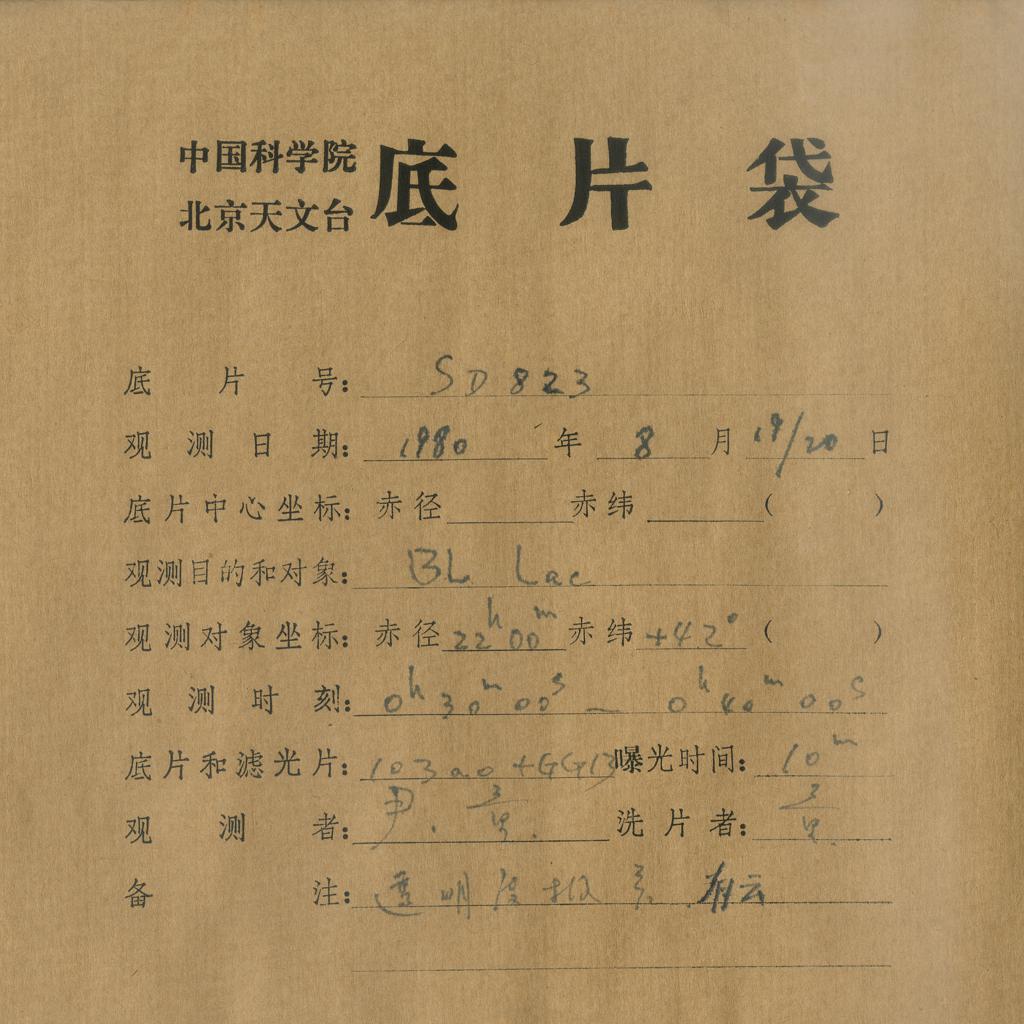 中国科学院
北京天文台
底片袋
底片号: SD823
观测日期: 1980年8月19/20日
底片中心坐标: 赤径 赤纬 ( )
观测目的和对象: BL Lac
观测对象坐标: 赤径22h00m赤纬+42°( )
观测时刻: 0h30m00s — 0h40m00s
底片和滤光片: 103aO+GG13曝光时间: 10m
观测者: 尹. 洗片者:
备注: 透明度极差. 有云